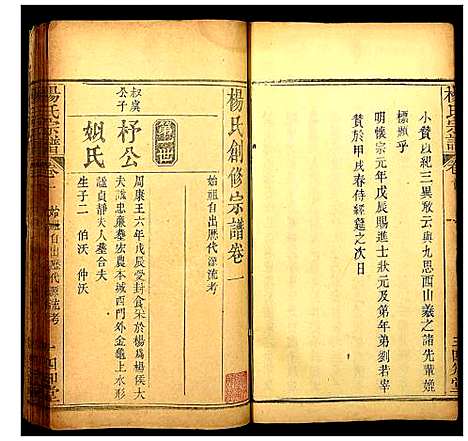 小贊以紀三異敢云與九思西山羲之諸先輩媲
標題乎
明懷宗元年戊辰賜進士狀元及第年弟劉若宰
贊於甲戌春侍經筵之次日
楊氏宗譜
楊氏創修宗譜卷一
始祖自出歷代源流考
第一世
叔虞公子
杼公
姒氏
周康王六年戊辰受封食采於楊為楊侯大
夫諡忠廉葬宏農本城西門外金龜上水形
諡貞靜夫人葬合夫
生子二 伯沃 仲沃
楊氏宗譜
卷一
始祖自出歷代源流考
四知堂